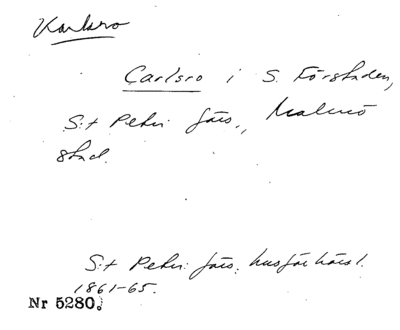 Karlsro
Carlsro i S. Förstaden,
S:t Petri förs., Malmö
stad.
S:t Petri förs. husförhörsl.
1861-65.
Nr 5280.